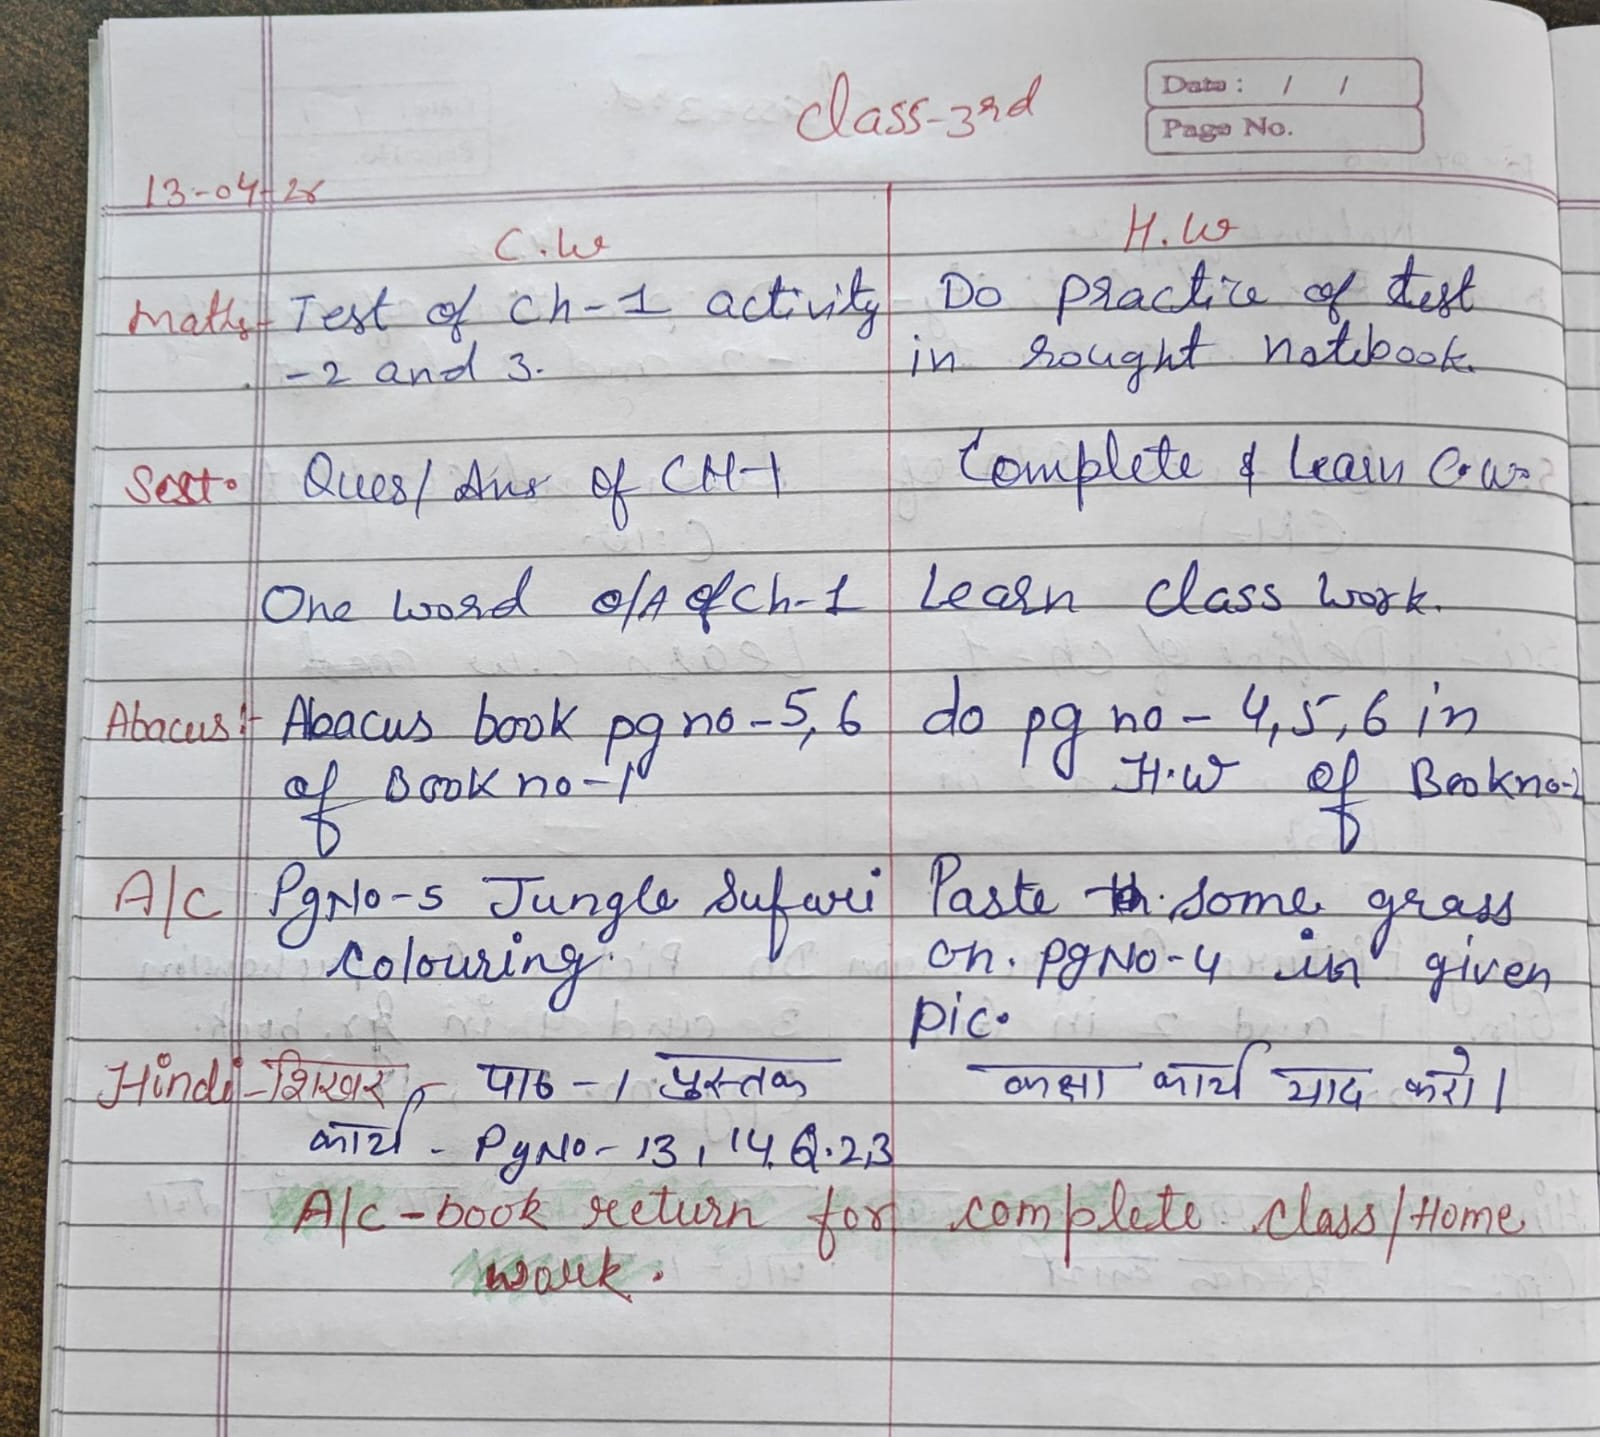 class-3rd
Date : / /
Page No.
13-04-26
C.W
H.W
Maths- Test of Ch-1 activity Do practice of test
-2 and 3. in rought notebook.
Sest. Ques/Ans of CH-1 Complete & Learn C.w.
One word Q/A of Ch-1 Learn class work.
Abacus:- Abacus book pg no-5,6 do pg no - 4,5,6 in
of Book no-1 H.W of Book no-2
A/C PgNo-5 Jungle Sufari Paste some grass
colouring. on. PgNo-4 in given
pic.
Hindi-शिखर - पाठ -1 पुस्तक कक्षा कार्य याद करो।
कार्य - PgNo- 13, 14. Q.2,3
A/C-book return for complete class/Home
work.